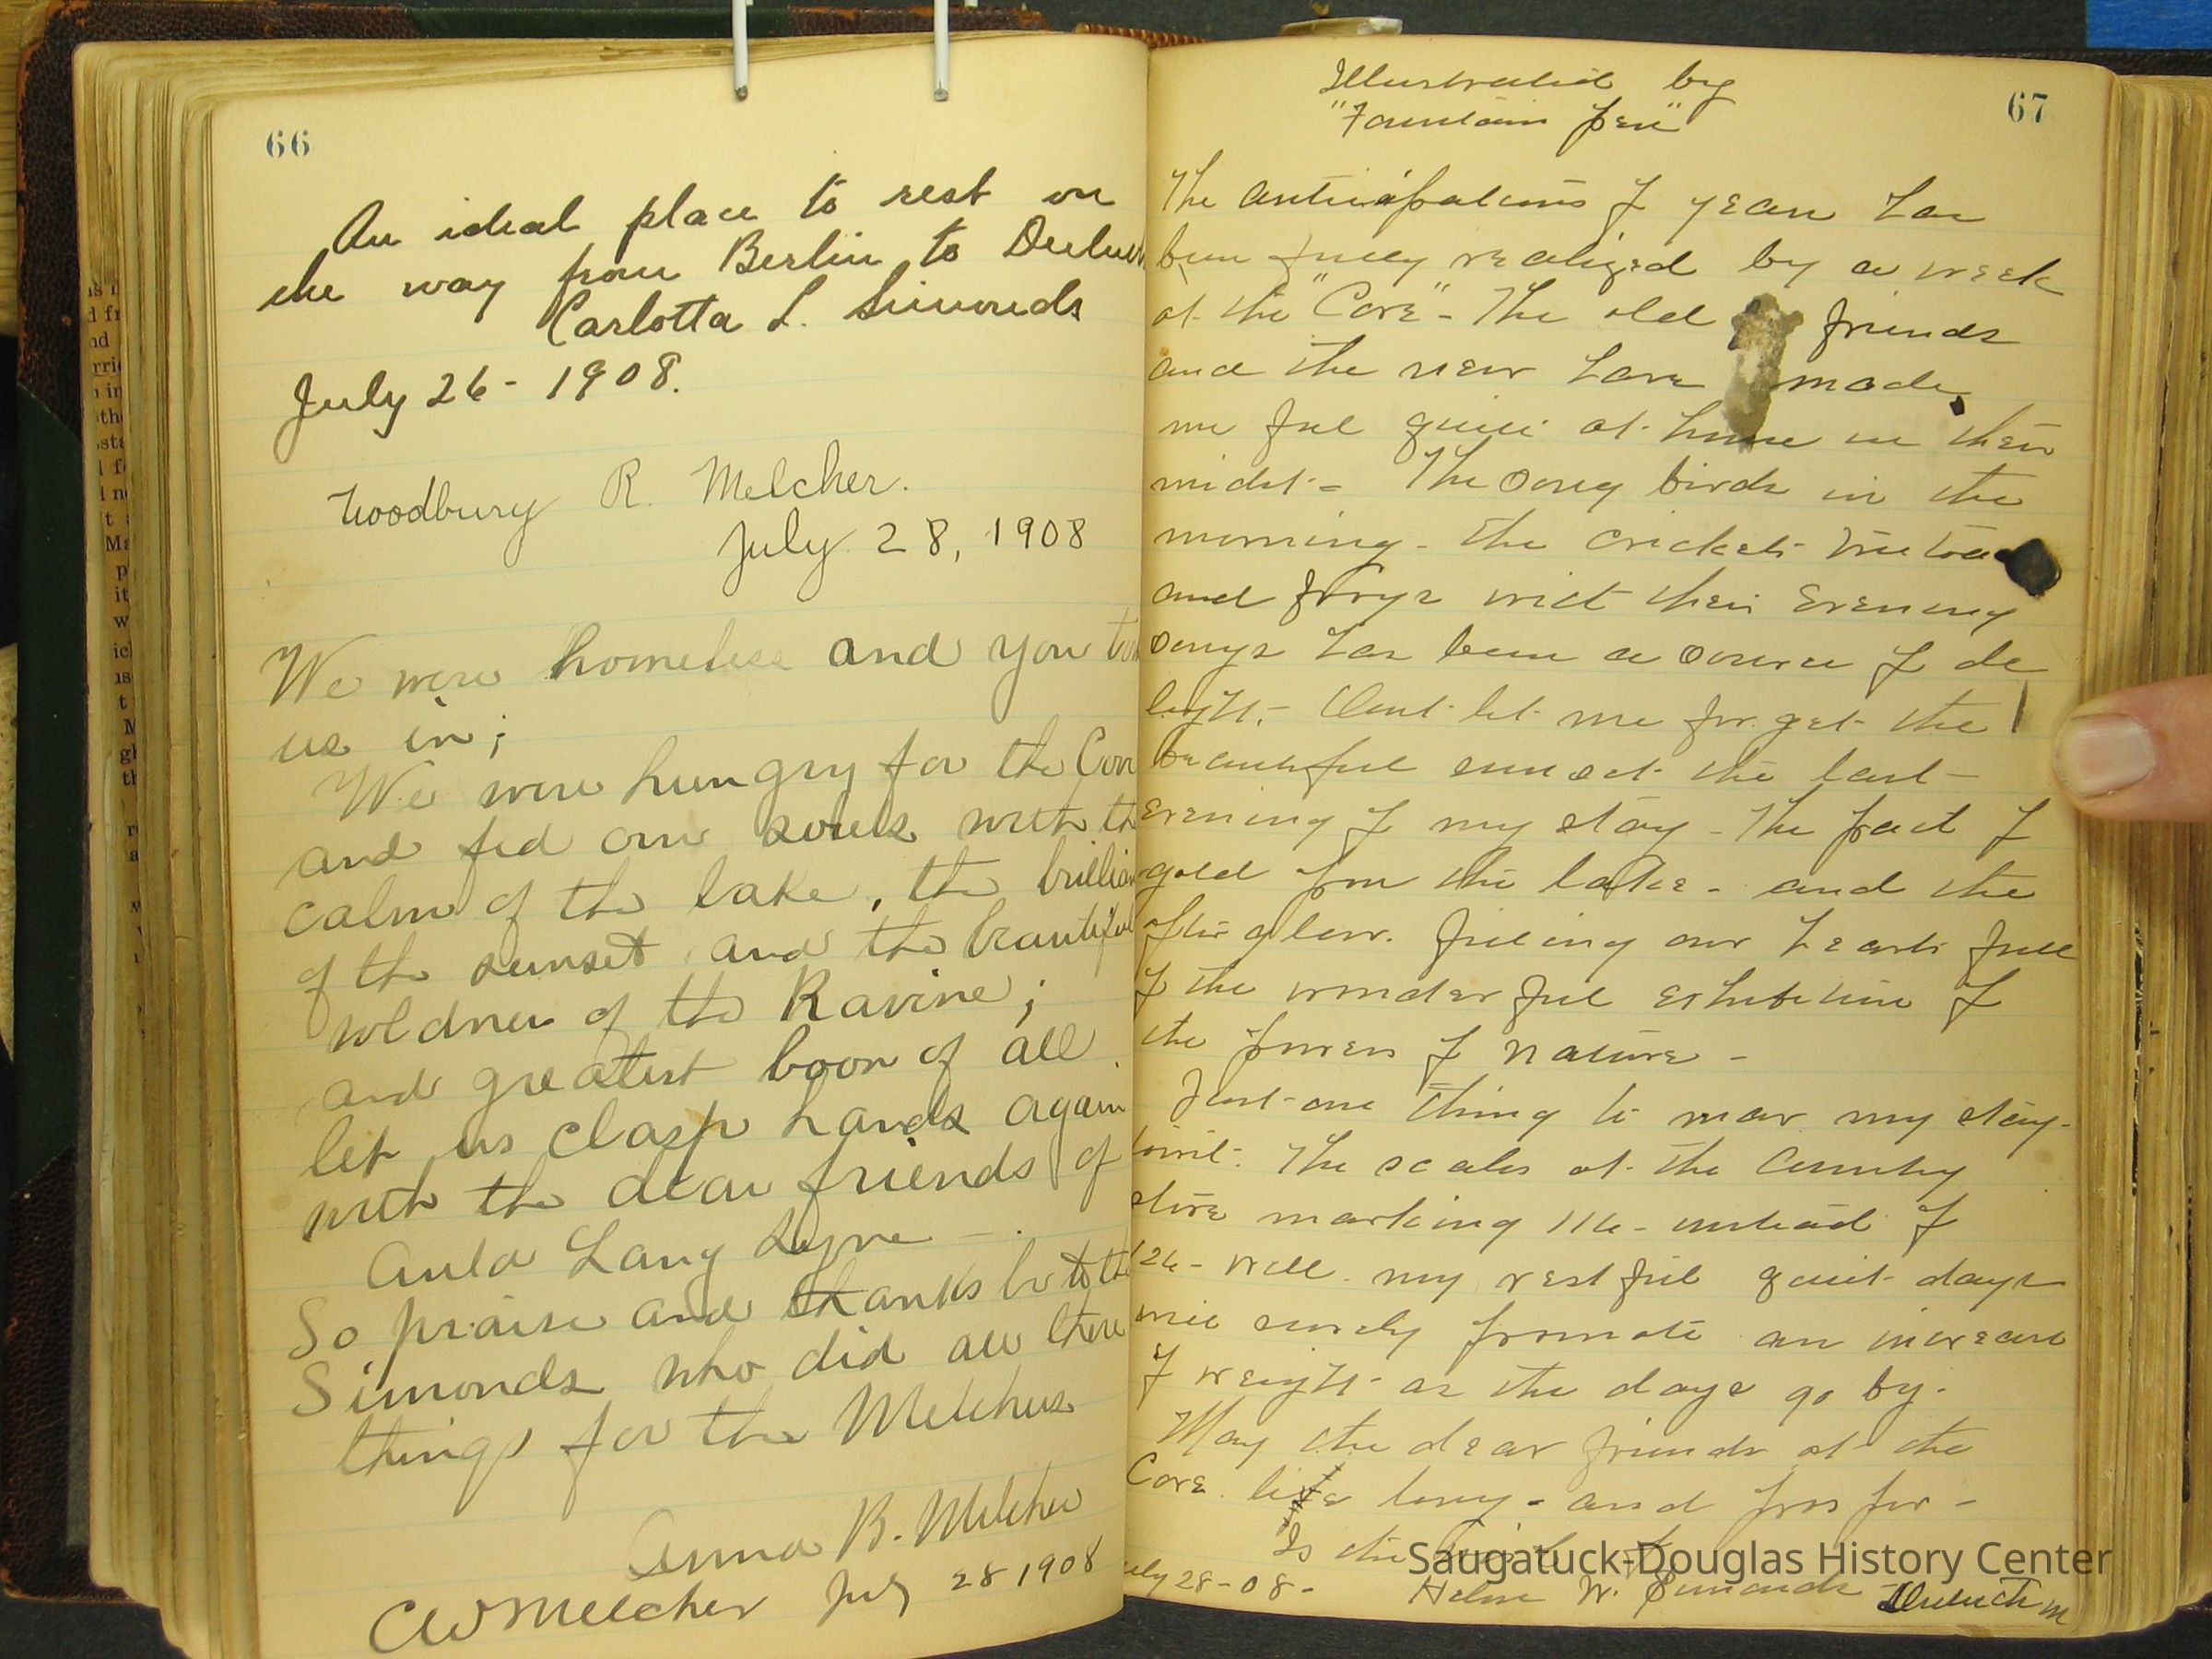 66
An ideal place to rest on
the way from Berlin to Duluth
Carlotta L. Simonds
July 26 - 1908.
Woodbury R. Melcher.
July 28, 1908
We were homeless and you took
us in;
We were hungry for the Cove
and fed our souls with the
calm of the lake, the brilliancy
of the sunset and the beautiful
wildness of the Ravine;
and greatest boon of all
let us clasp hands again
with the dear friends of
Auld Lang Syne —.
So praise and thanks be to the
Simonds who did all these
things for the Melchers
Anna B. Melcher
CW Melcher July 28 1908
67
Illustrated by
"Fountain Pen"
The anticipations of years has
been fully realized by a week
at the "Cove" - The old friends
and the new have made
me feel quite at home in their
midst - The song birds in the
morning - the crickets tree toads
and frogs with their evening
songs has been a source of de
light. - Dont let me forget the
beautiful sunset the last
evening of my stay - The path of
gold from the lake - and the
after glow. filling our hearts full
of the wonderful exhibition of
the powers of nature -
Just one thing to mar my stay -
towit. The scales at the Country
store marking 116 - instead of
126 - Well my restful quiet days
will surely promote an increase
of weight as the days go by -
May the dear friends at the
Cove live long - and prosper -
Is the
July 28 - 08 - Helen W. Simonds - Duluth M
Saugatuck-Douglas History Center